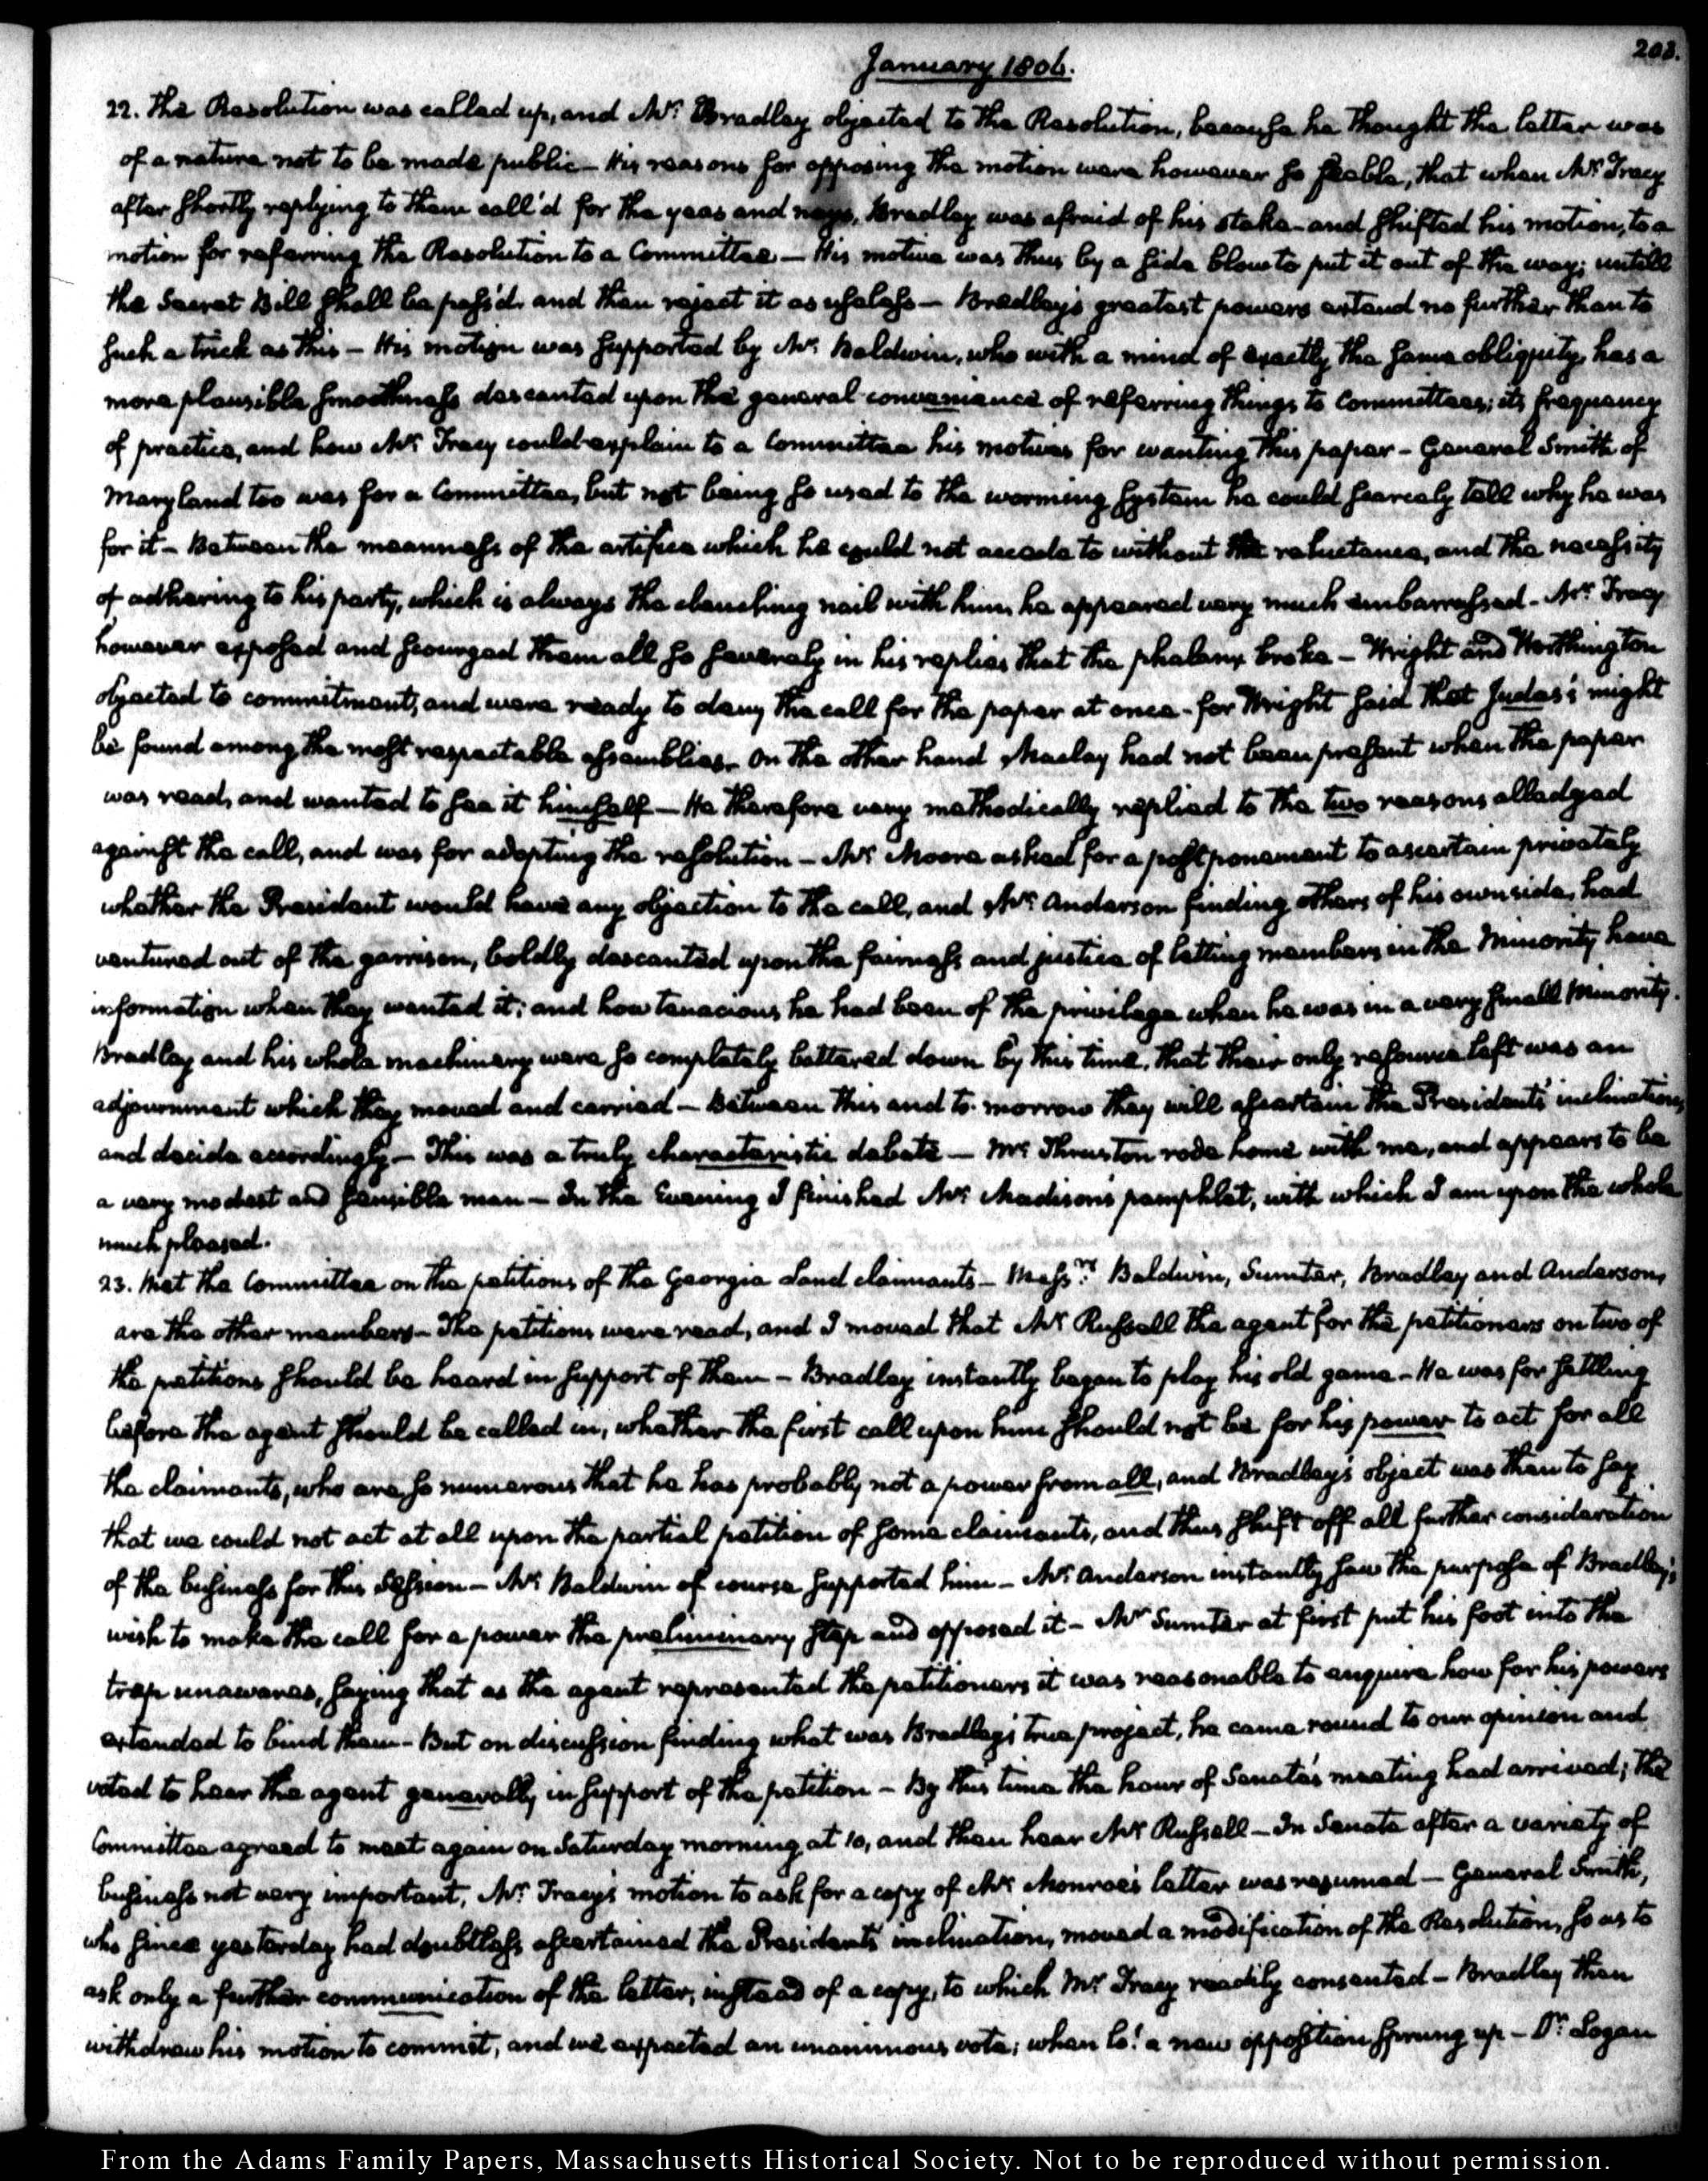 203.
January 1806.
22. The Resolution was called up, and Mr. Bradley objected to the Resolution, because he thought the letter was
of a nature not to be made public — His reasons for opposing the motion were however so feeble, that when Mr. Tracy
after shortly replying to them call'd for the yeas and nays, Bradley was afraid of his stake — and shifted his motion, to a
motion for referring the Resolution to a Committee — His motive was thus by a side blow to put it out of the way; untill
the Secret Bill shall be pass'd, and then reject it as useless — Bradley's greatest powers extend no further than to
such a trick as this — His motion was supported by Mr. Baldwin, who with a mind of exactly the same obliquity, has a
more plausible smoothness descanted upon the general convenience of referring things to Committees; its frequency
of practice, and how Mr. Tracy could explain to a Committee his motives for wanting this paper — General Smith of
Maryland too was for a Committee, but not being so used to the worming system he could scarcely tell why he was
for it — Between the meanness of the artifice which he could not accede to without reluctance, and the necessity
of adhering to his party, which is always the clenching nail with him, he appeared very much embarrassed — Mr. Tracy
however exposed and scourged them all so severely in his replies that the phalanx broke — Wright and Worthington
objected to commitment, and were ready to deny the call for the paper at once — for Wright said that Judas's might
be found among the most respectable assemblies. On the other hand Maclay had not been present when the paper
was read, and wanted to see it himself — He therefore very methodically replied to the two reasons alledged
against the call, and was for adopting the resolution — Mr. Moore asked for a postponement to ascertain privately
whether the President would have any objection to the call, and Mr. Anderson finding others of his own side, had
ventured out of the garrison, boldly descanted upon the fairness and justice of letting members in the Minority have
information when they wanted it; and how tenacious he had been of the privilege when he was in a very small Minority.
Bradley and his whole machinery were so completely battered down by this time, that their only resource left was an
adjournment which they moved and carried — Between this and to-morrow they will ascertain the President's inclinations,
and decide accordingly — This was a truly characteristic debate — Mr. Thruston rode home with me, and appears to be
a very modest and sensible man — In the Evening I finished Mr. Madison's pamphlet, with which I am upon the whole
much pleased.
23. Met the Committee on the petitions of the Georgia Land claimants — Messrs. Baldwin, Sumter, Bradley and Anderson,
are the other members — The petitions were read, and I moved that Mr. Russell the agent for the petitioners on two of
the petitions should be heard in support of them — Bradley instantly began to play his old game — He was for settling
before the agent should be called in, whether the first call upon him should not be for his power to act for all
the claimants, who are so numerous that he has probably not a power from all, and Bradley's object was then to say
that we could not act at all upon the partial petition of some claimants, and thus shift off all further consideration
of the business for this Session — Mr. Baldwin of course supported him — Mr. Anderson instantly saw the purpose of Bradley's
wish to make the call for a power the preliminary step and opposed it — Mr. Sumter at first put his foot into the
trap unawares, saying that as the agent represented the petitioners it was reasonable to enquire how far his powers
extended to bind them — But on discussion finding what was Bradley's true project, he came round to our opinion and
voted to hear the agent generally in support of the petition — By this time the hour of Senate's meeting had arrived; the
Committee agreed to meet again on Saturday morning at 10, and then hear Mr. Russell — In Senate after a variety of
business not very important, Mr. Tracy's motion to ask for a copy of Mr. Monroe's letter was resumed — General Smith,
who since yesterday had doubtless ascertained the President's inclination, moved a modification of the Resolution, so as to
ask only a further communication of the letter, instead of a copy, to which Mr. Tracy readily consented — Bradley then
withdrew his motion to commit, and we expected an unanimous vote; when lo! a new opposition sprung up — Dr. Logan
From the Adams Family Papers, Massachusetts Historical Society. Not to be reproduced without permission.